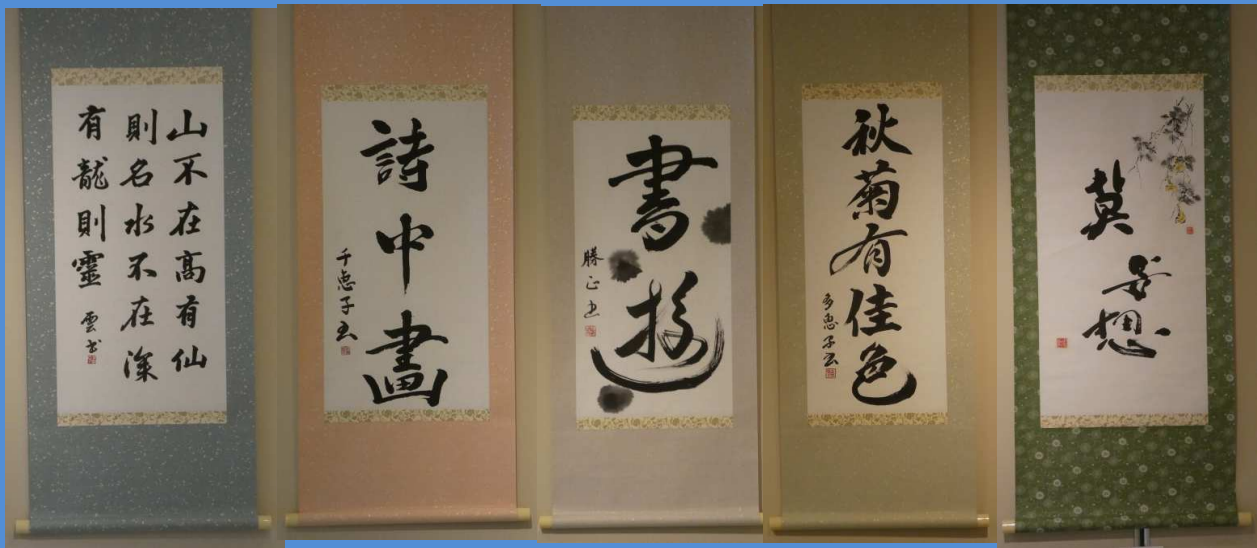 山不在高有仙
則名水不在深
有龍則靈
雲書
詩中畫
千恵子書
書遊
勝正書
秋菊有佳色
多恵子書
莫妄想